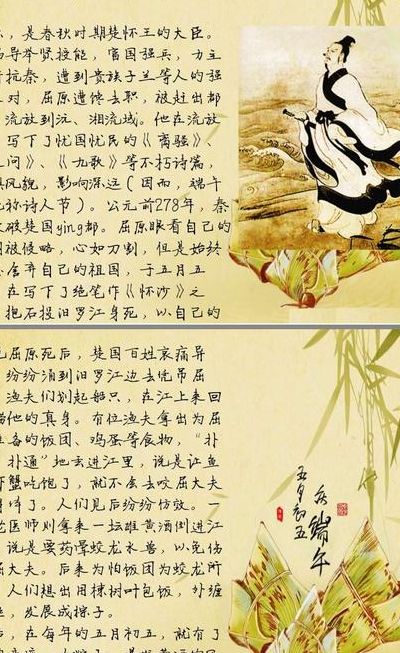 ，是春秋时期楚怀王的大臣。
导举贤授能，富国强兵，力主
抗秦，遭到贵族子兰等人的强
对，屈原遭馋去职，被赶出都
流放到沅、湘流域。他在流放
写下了忧国忧民的《离骚》、
问》、《九歌》等不朽诗篇，
风貌，影响深远（因而，端午
称诗人节）。公元前278年，秦
破楚国ying都。屈原眼看自己的
被侵略，心如刀割，但是始终
舍弃自己的祖国，于五月五
在写下了绝笔作《怀沙》之
抱石投汨罗江身死，以自己的
屈原死后，楚国百姓哀痛异
纷纷涌到汨罗江边去凭吊屈
渔夫们划起船只，在江上来回
他的真身。有位渔夫拿出为屈
准备的饭团、鸡蛋等食物，“扑
扑通”地丢进江里，说是让鱼
蟹吃饱了，就不会去咬屈大夫
了。人们见后纷纷仿效。一
医师则拿来一坛雄黄酒倒进江
说是要药晕蛟龙水兽，以免伤
屈大夫。后来为怕饭团为蛟龙所
人们想出用楝树叶包饭，外缠
，发展成粽子。
，在每年的五月初五，就有了
端午
五月初五